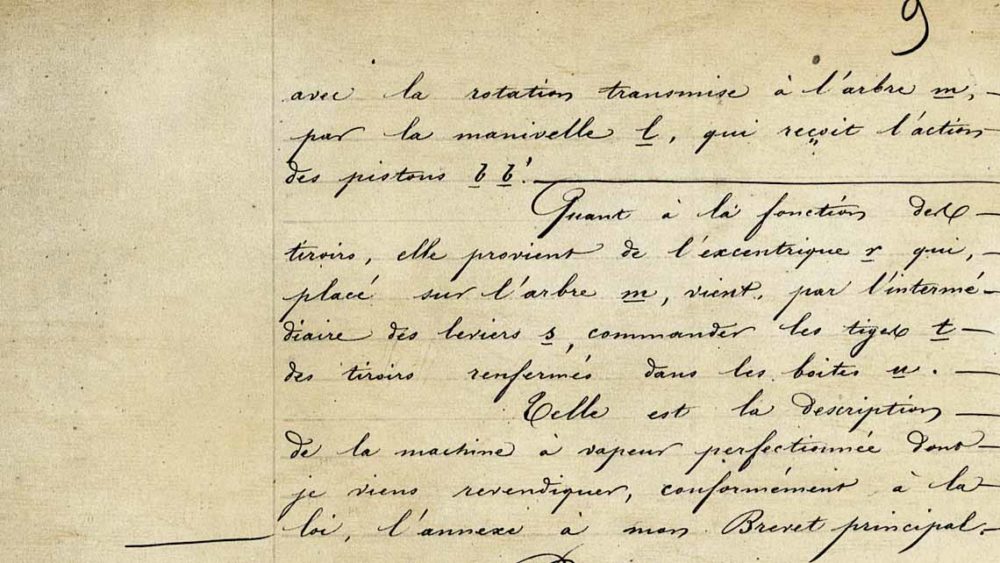 9
avec la rotation transmise à l'arbre m, —
par la manivelle l, qui reçoit l'action
des pistons b b'. —
Quant à la fonction des —
tiroirs, elle provient de l'excentrique r qui, —
placé sur l'arbre m, vient, par l'intermé-
diaire des leviers s, commander les tiges t —
des tiroirs renfermés dans les boites u. —
Telle est la description —
de la machine à vapeur perfectionnée dont —
je viens revendiquer, conformément à la —
loi, l'annexe à mon Brevet principal. —